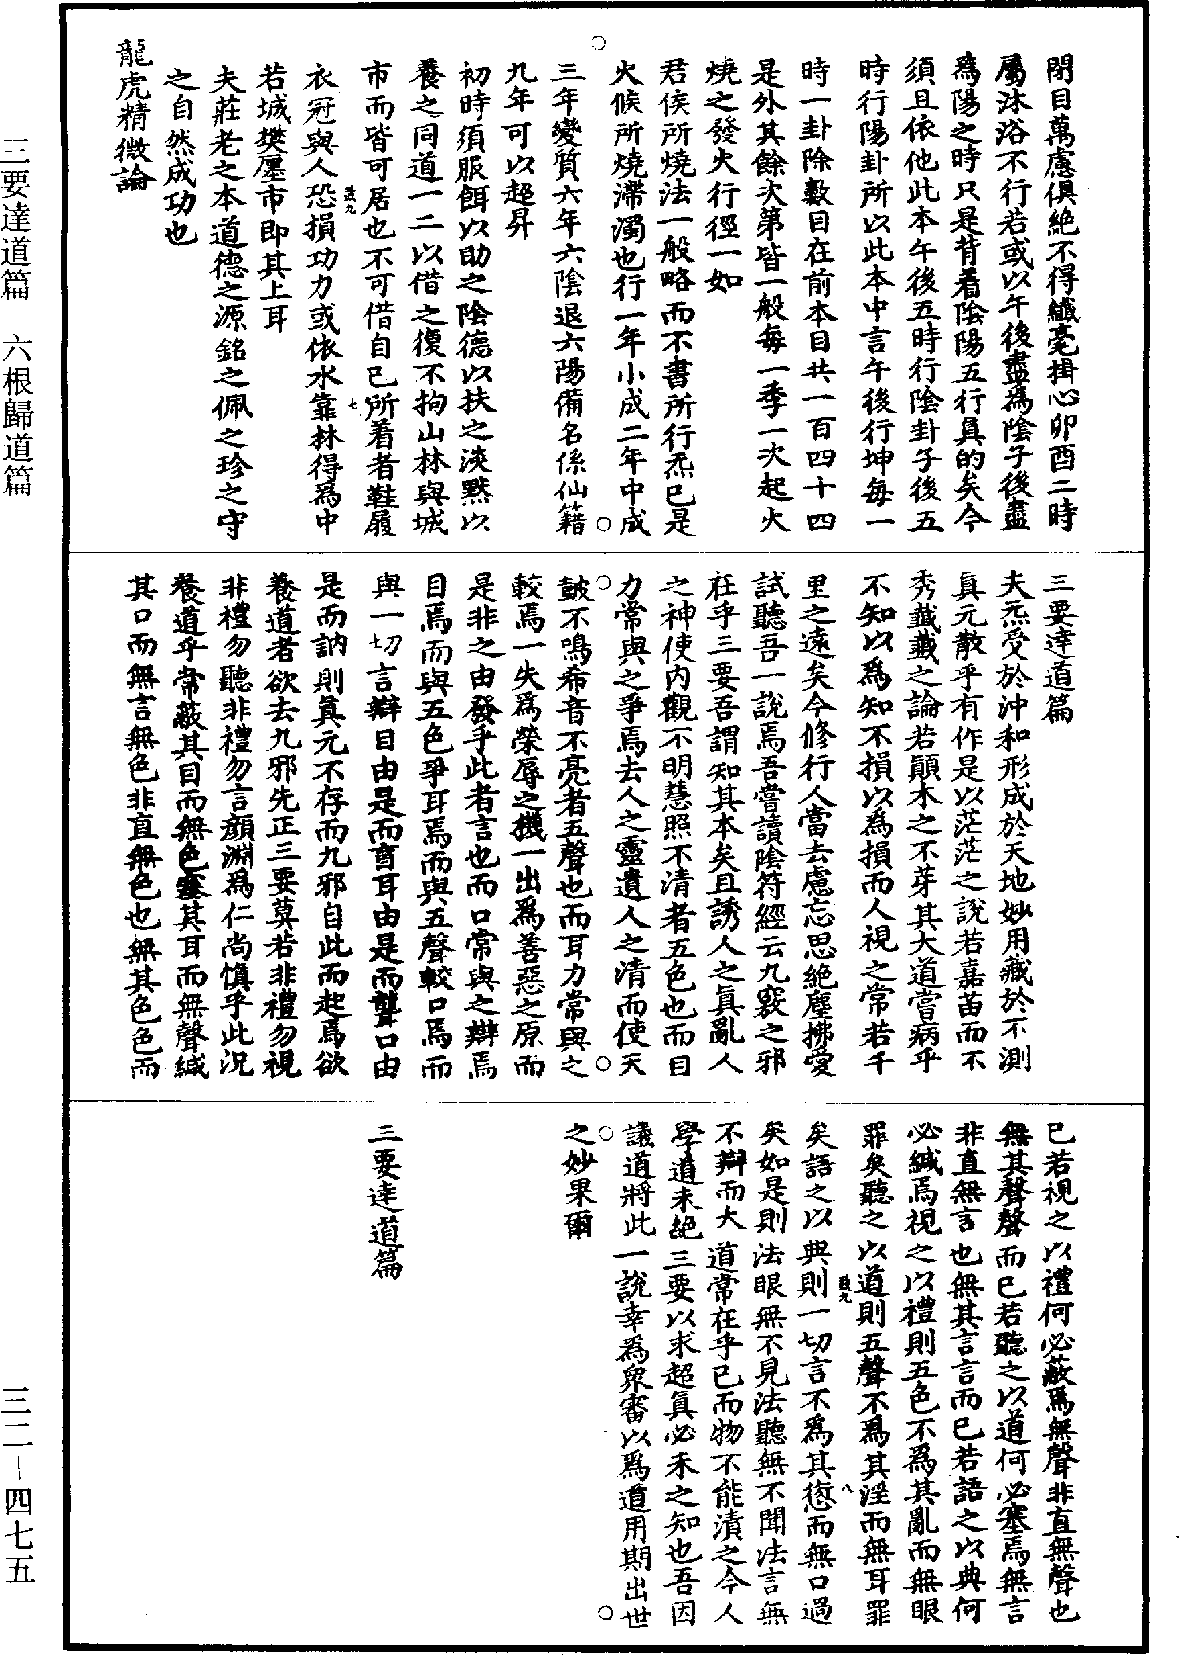 閉目萬慮俱絕不得纖毫掛心卯酉二時
屬沐浴不行若或以午後盡為陰子後盡
為陽之時只是背看陰陽五行真的矣今
須且依他此本午後五時行陰卦子後五
時行陽卦所以此本中言午後行坤每一
時一卦除數目在前本目共一百四十四
是外其餘次第皆一般每一季一次起火
燒之發火行徑一如
君侯所燒法一般略而不書所行炁已是
火候所燒滯濁也行一年小成二年中成
三年變質六年六陰退六陽備名係仙籍
九年可以超昇
初時須服餌以助之陰德以扶之淡默以
養之同道一二以偕之復不拘山林與城
市而皆可居也不可借自己所着者鞋履
衣冠與人恐損功力或依水靠林得為中
若城樊廛市即其上耳
夫莊老之本道德之源銘之佩之珍之守
之自然成功也
龍虎精微論
三要達道篇
夫炁受於沖和形成於天地妙用藏於不測
真元散乎有作是以茫茫之說若嘉苗而不
秀讖讖之論若顛木之不芽其大道嘗病乎
不知以為知不損以為損而人視之常若千
里之遠矣今修行人當去慮忘思絕塵拂愛
試聽吾一說焉吾嘗讀陰符經云九竅之邪
在乎三要吾謂知其本矣且誘人之真亂人
之神使内觀不明慧照不清者五色也而目
力常與之爭焉去人之靈遺人之清而使天
皷不鳴希音不亮者五聲也而耳力常與之
較焉一失為榮辱之機一出為善惡之原而
是非之由發乎此者言也而口常與之辯焉
目焉而與五色爭耳焉而與五聲較口焉而
與一切言辯目由是而盲耳由是而聾口由
是而訥則真元不存而九邪自此而起焉欲
養道者欲去九邪先正三要莫若非禮勿視
非禮勿聽非禮勿言顏淵為仁尚慎乎此況
養道乎常蔽其目而無色塞其耳而無聲緘
其口而無言無色非直無色也無其色色而
已若視之以禮何必蔽焉無聲非直無聲也
無其聲聲而已若聽之以道何必塞焉無言
非直無言也無其言言而已若語之以典何
必緘焉視之以禮則五色不為其亂而無眼
罪矣聽之以道則五聲不為其淫而無耳罪
矣語之以典則一切言不為其愆而無口過
矣如是則法眼無不見法聽無不聞法言無
不辯而大道常在乎已而物不能漬之今人
學道未絕三要以求超真必未之知也吾因
議道將此一說幸為衆審以為道用期出世
之妙果爾
三要達道篇
三要達道篇　六根歸道篇
三二－四七五